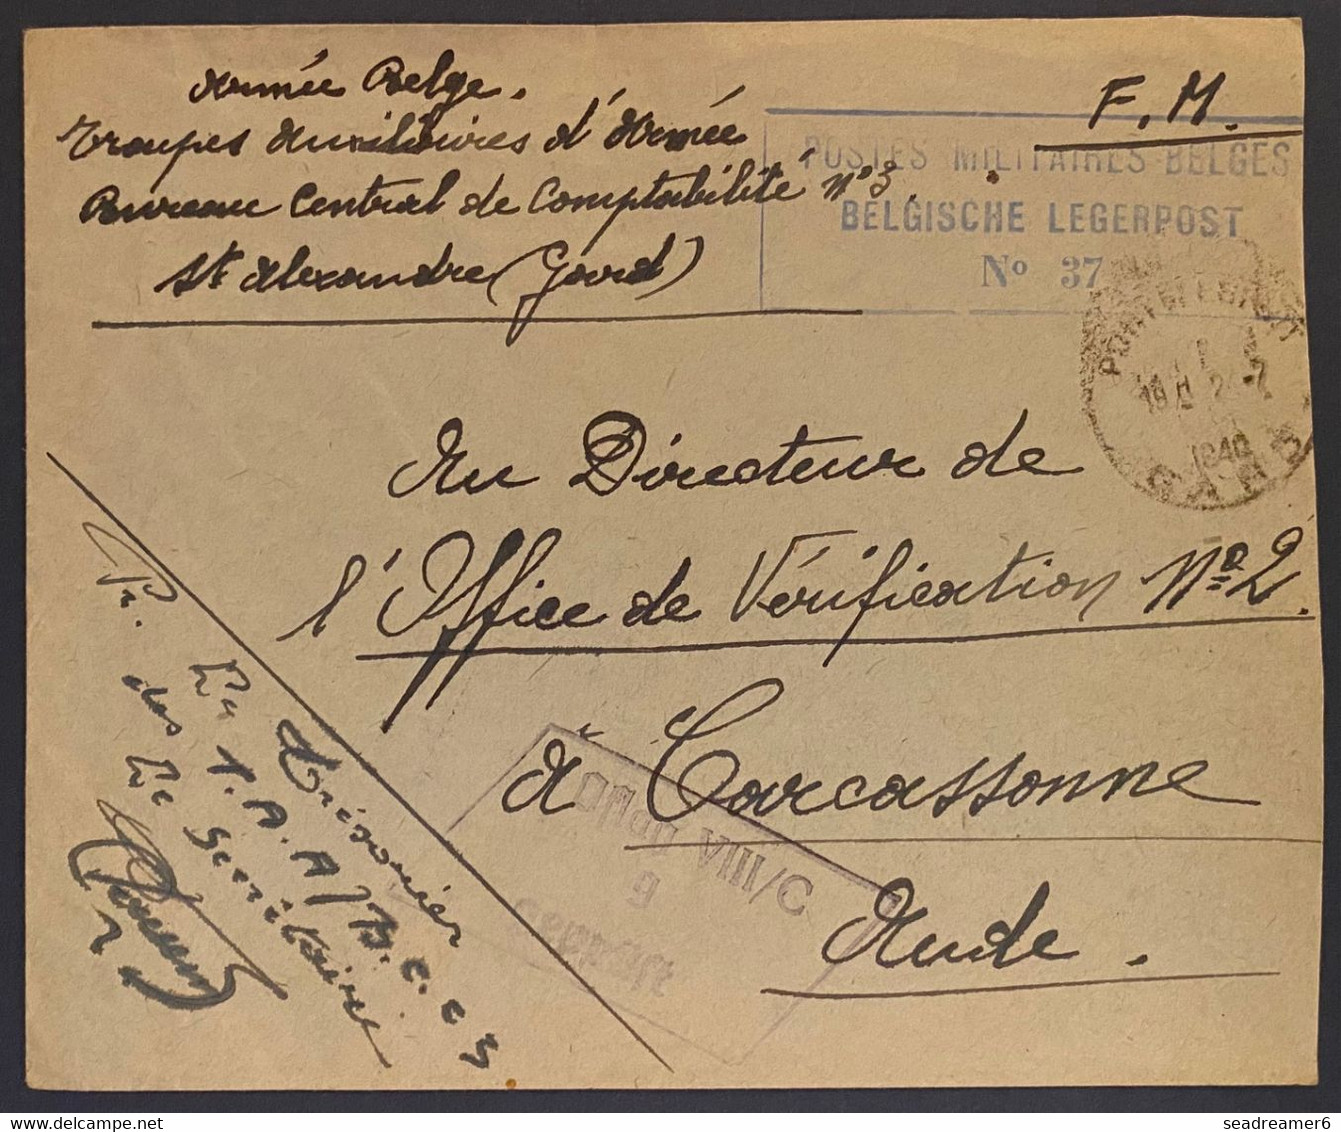 Armée Belge.
Troupes Auxiliaires d'Armée
Bureau Central de Comptabilité n° 3
St Alexandre (Gard)
F.M.
POSTES MILITAIRES BELGES
BELGISCHE LEGERPOST
No 37
PONT-ST ESPRIT
1940
GARD
Au Directeur de
l'Office de Vérification No 2.
à Carcassonne
Aude.
Pr. Le Trésorier
des T.A.A/B.C.C 3
Le Secrétaire
Oflag VIII/C
9
Geprüft
seadreamer6
www.delcampe.net